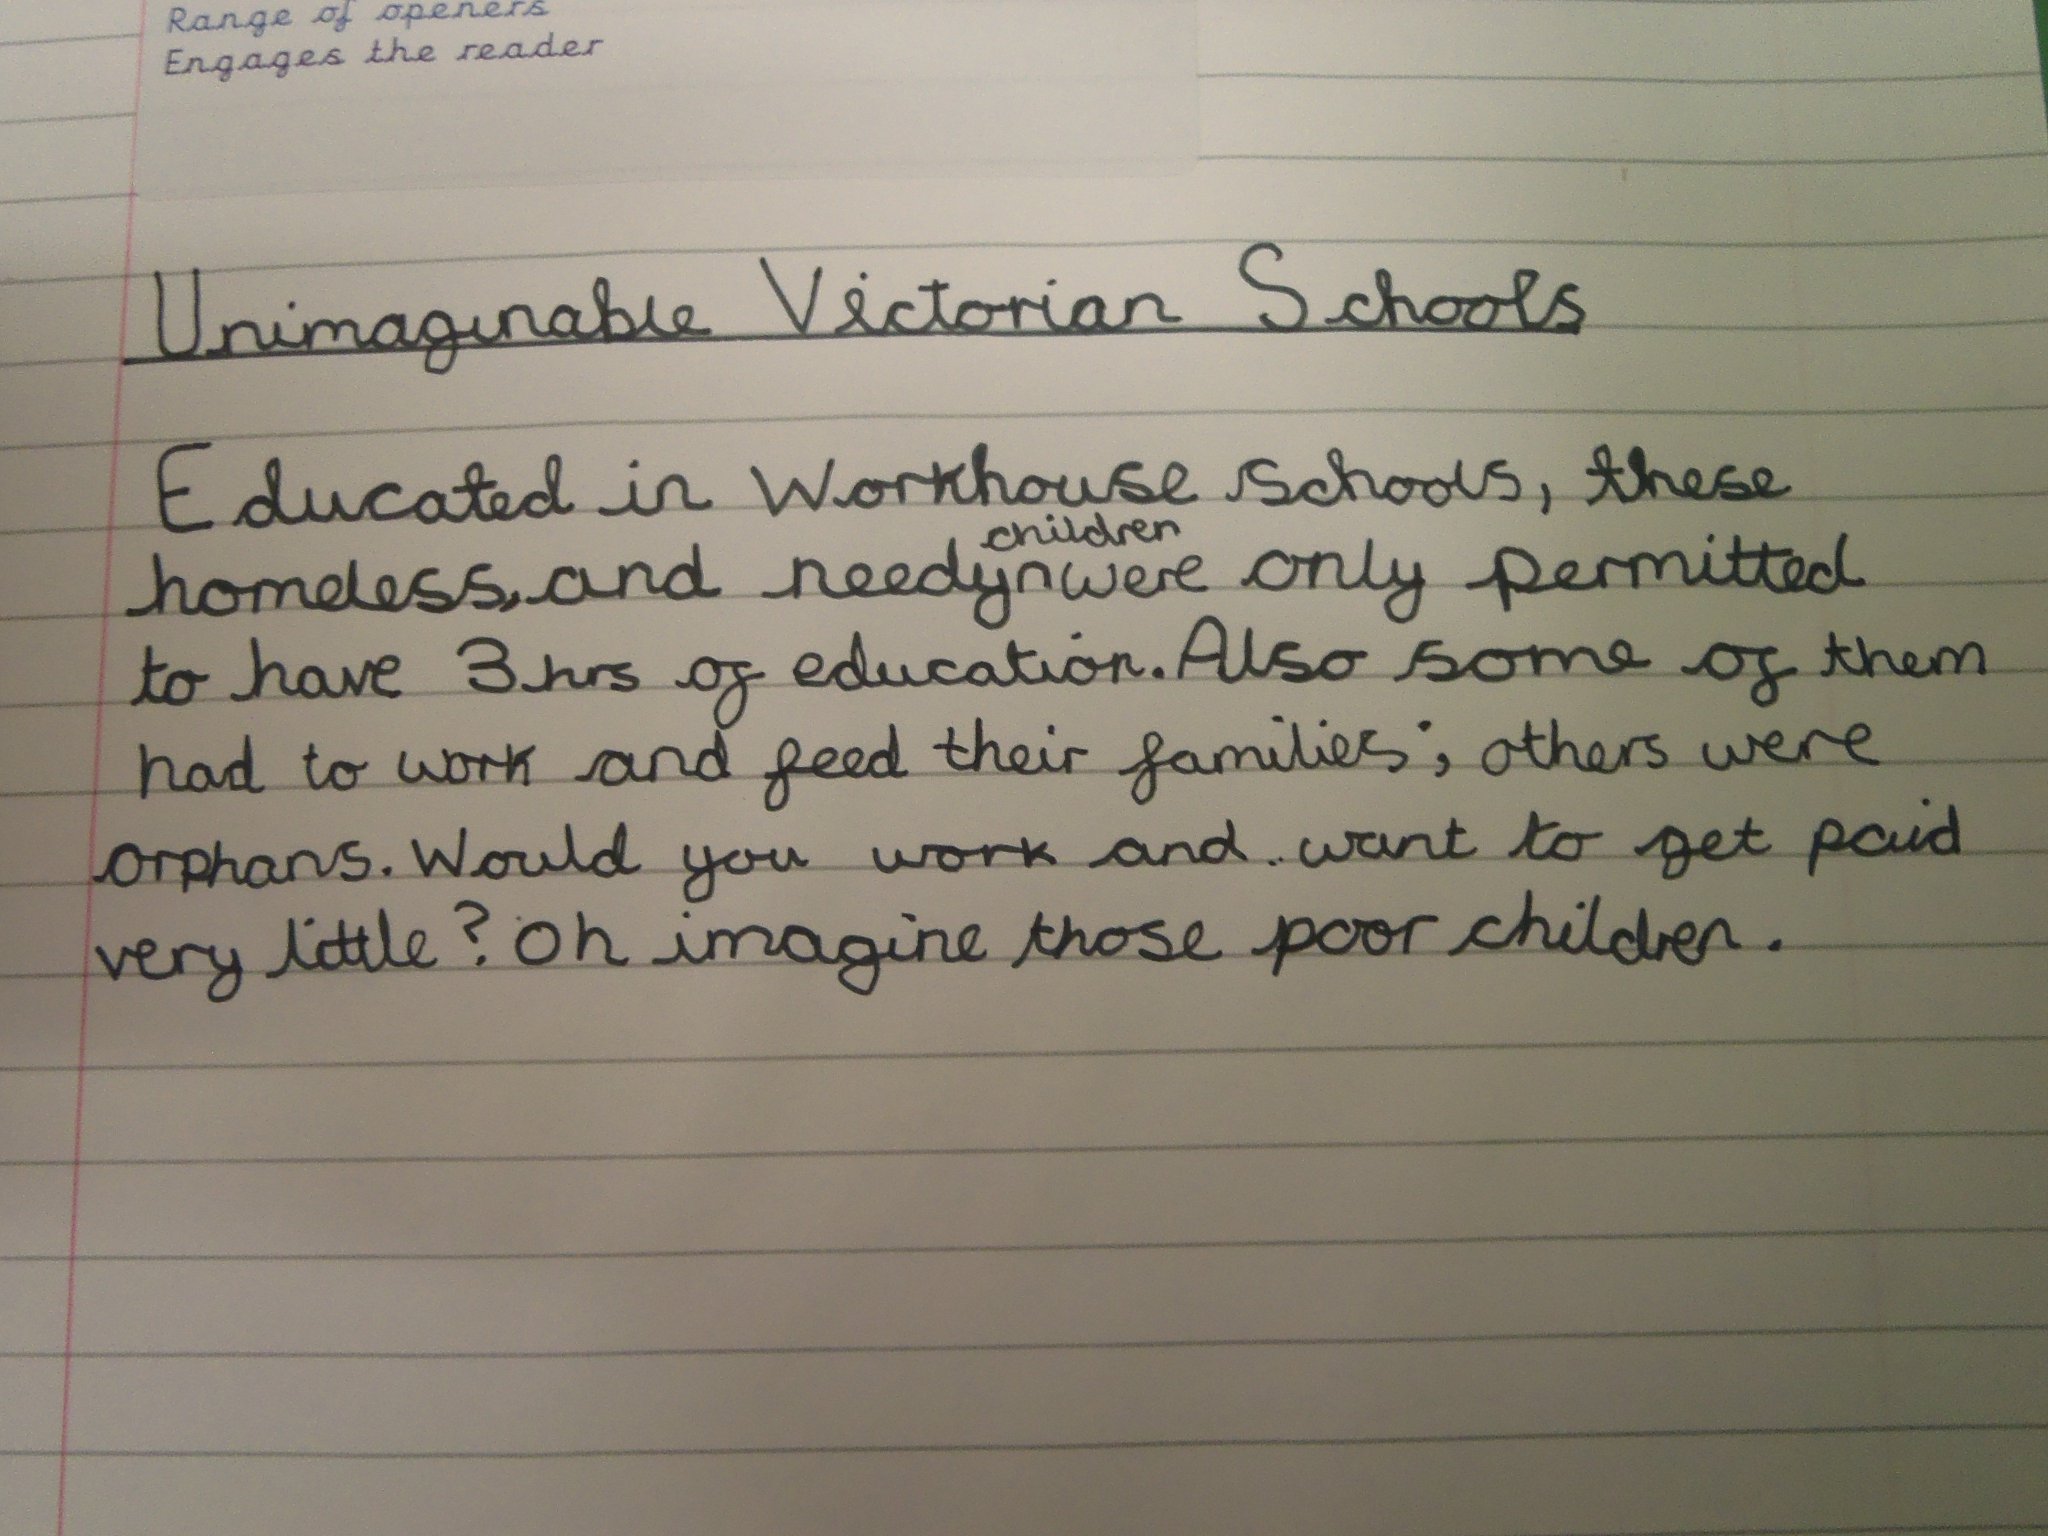 Range of openers
Engages the reader
Unimaginable Victorian Schools
Educated in Workhouse schools, these
children
homeless, and needy were only permitted
to have 3 hrs of education. Also some of them
had to work and feed their families; others were
orphans. Would you work and want to get paid
very little? Oh imagine those poor children.